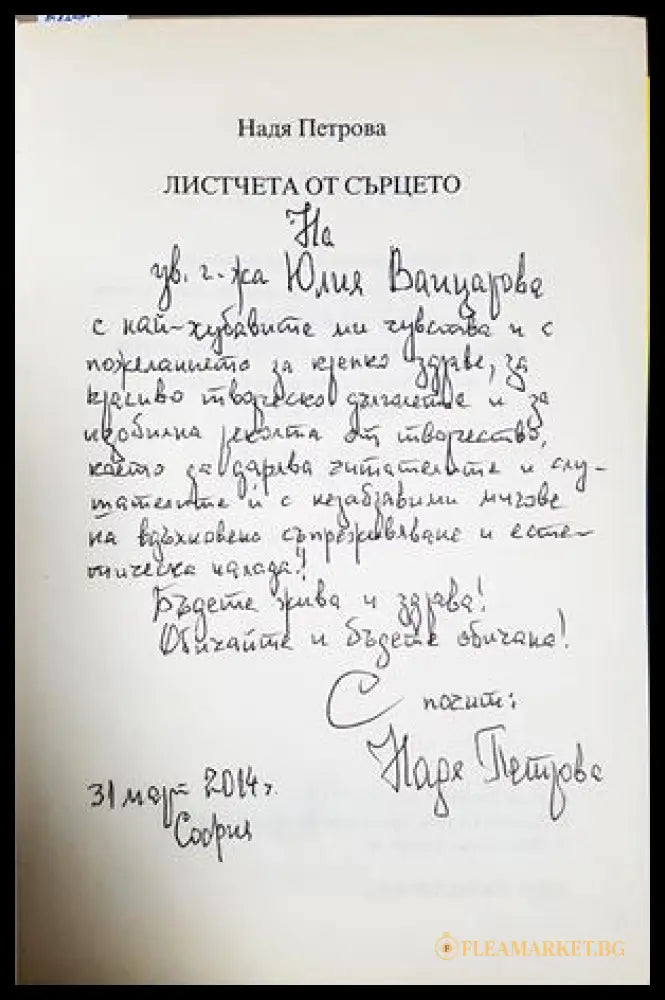 Надя Петрова
ЛИСТЧЕТА ОТ СЪРЦЕТО
На
ув. г-жа Юлия Ванцарова
с най-хубавите ми чувства и с
пожеланието за крепко здраве, за
красиво творческо дълголетие и за
изобилна реколта от творчество,
което да дарява читателите и слу-
шателите ѝ с незабравими мигове
на вдъхновено съпреживяване и есте-
тическа наслада!
Бъдете жива и здрава!
Обичайте и бъдете обичана!
С почит:
Надя Петрова
31 март 2014 г.
София
FLEAMARKET.BG